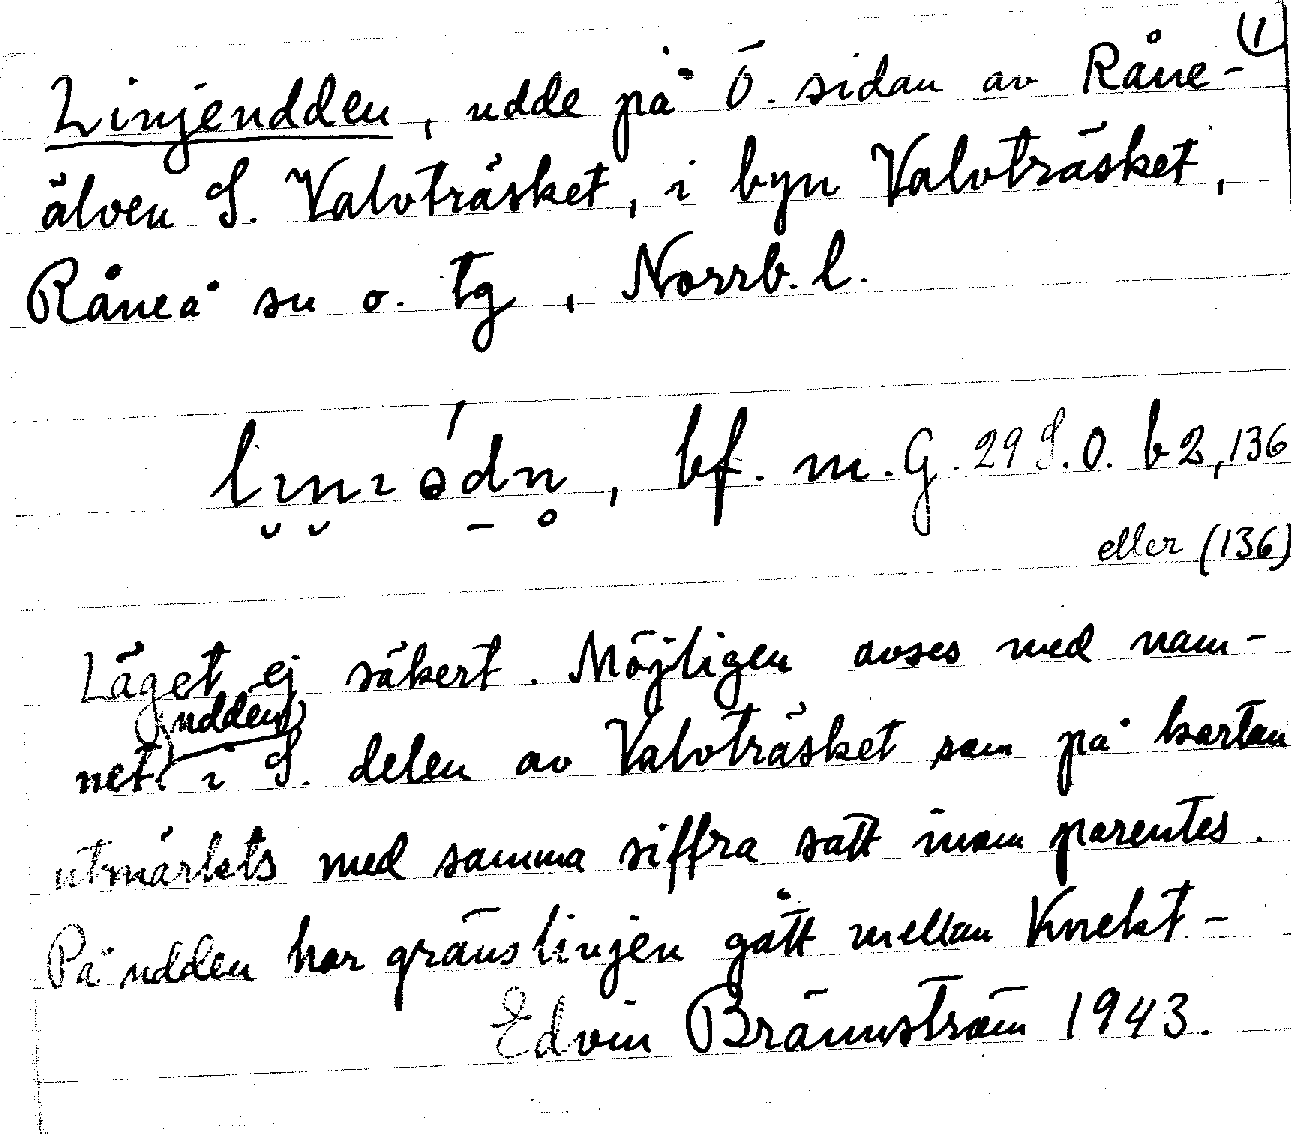 (1)
Linjeudden, udde på Ö. sidan av Råne-
älven S. Valvträsket, i byn Valvträsket,
Råneå sn o. tg, Norrb. l.
bf. m. G. 29 S.O. b2, 136
eller (136)
Läget ej säkert. Möjligen avses med nam-
net (udden) i S. delen av Valvträsket som på kartan
utmärkts med samma siffra satt inom parentes.
På udden har gränslinjen gått mellan Knekt-
Edvin Brännström 1943.